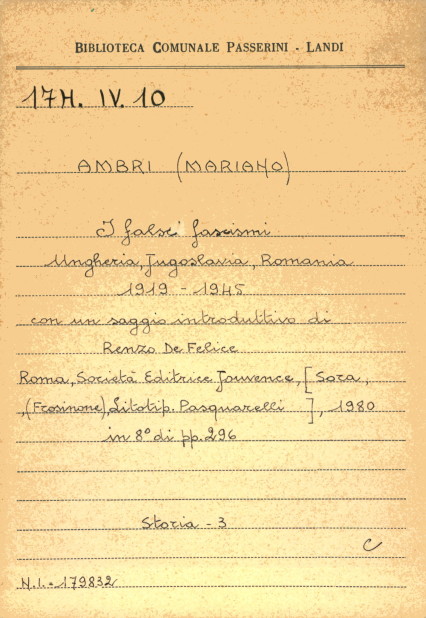 BIBLIOTECA COMUNALE PASSERINI - LANDI
17H. IV. 10
AMBRI (MARIANO)
I falsi fascismi
Ungheria, Jugoslavia, Romania
1919 - 1945
con un saggio introduttivo di
Renzo De Felice
Roma, Società Editrice Jouvence, [Sora,
,(Frosinone), Litotip. Pasquarelli ], 1980
in 8° di pp. 296
Storia - 3
C
N.I. - 179832